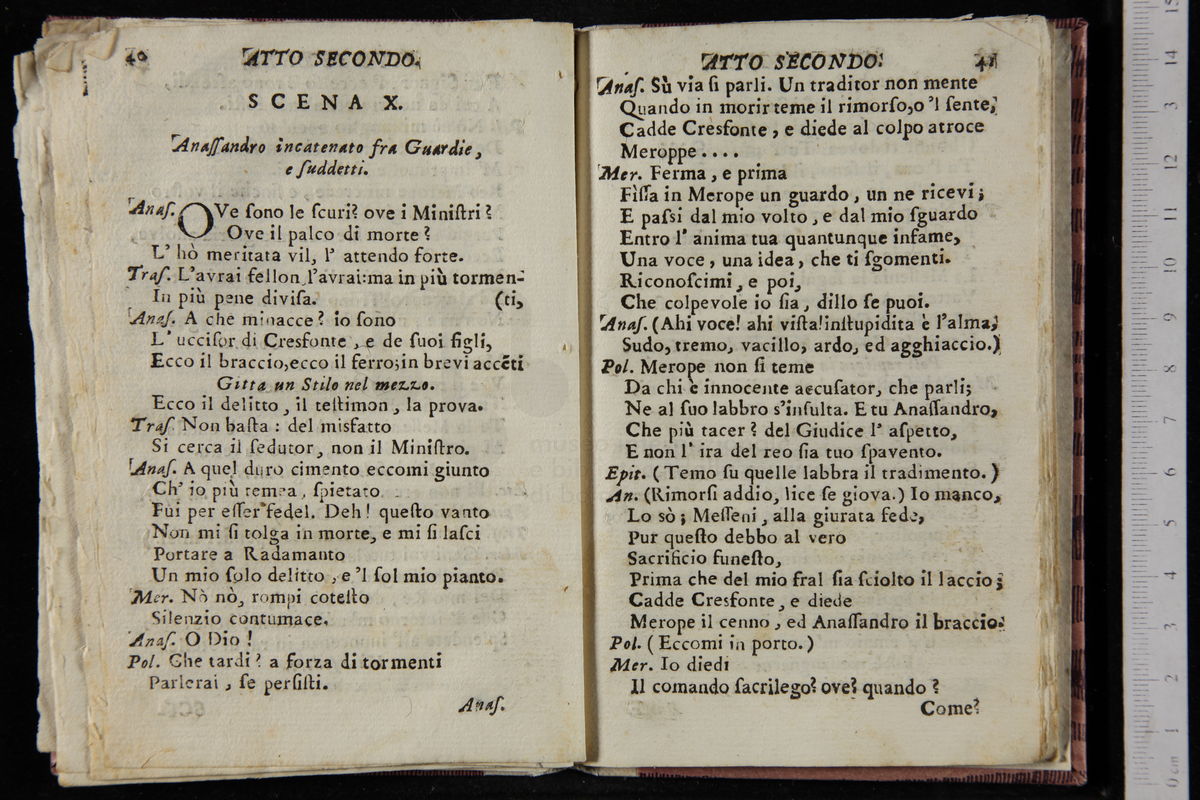 40 ATTO SECONDO.
SCENA X.
Anaſſandro incatenato fra Guardie,
e ſuddetti.
Anaſ. OVe ſono le ſcuri? ove i Miniſtri?
Ove il palco di morte?
L' hò meritata vil, l' attendo forte.
Traſ. L'avrai fellon, l'avrai:ma in più tormen-
In più pene diviſa. (ti,
Anaſ. A che minacce? io ſono
L' ucciſor di Cresfonte, e de ſuoi figli,
Ecco il braccio,ecco il ferro;in brevi accēti
Gitta un Stilo nel mezzo.
Ecco il delitto, il teſtimon, la prova.
Traſ. Non baſta : del misfatto
Si cerca il ſedutor, non il Miniſtro.
Anaſ. A quel duro cimento eccomi giunto
Ch' io più temea, ſpietato
Fui per eſſer fedel. Deh! queſto vanto
Non mi ſi tolga in morte, e mi ſi laſci
Portare a Radamanto
Un mio ſolo delitto, e 'l ſol mio pianto.
Mer. Nò nò, rompi coteſto
Silenzio contumace.
Anaſ. O Dio!
Pol. Che tardi? a forza di tormenti
Parlerai, ſe perſiſti.
Anaſ.
ATTO SECONDO. 41
Anaſ. Sù via ſi parli. Un traditor non mente
Quando in morir teme il rimorſo,o 'l ſente,
Cadde Cresfonte, e diede al colpo atroce
Meroppe....
Mer. Ferma, e prima
Fiſſa in Merope un guardo, un ne ricevi;
E paſsi dal mio volto, e dal mio ſguardo
Entro l' anima tua quantunque infame,
Una voce, una idea, che ti ſgomenti.
Riconoſcimi, e poi,
Che colpevole io ſia, dillo ſe puoi.
Anaſ. (Ahi voce! ahi viſta!inſtupidita è l'alma,
Sudo, tremo, vacillo, ardo, ed agghiaccio.)
Pol. Merope non ſi teme
Da chi è innocente accuſator, che parli;
Ne al ſuo labbro s'inſulta. E tu Anaſſandro,
Che più tacer? del Giudice l' aſpetto,
E non l' ira del reo ſia tuo ſpavento.
Epit. (Temo ſu quelle labbra il tradimento.)
An. (Rimorſi addio, lice ſe giova.) Io manco,
Lo sò; Meſſeni, alla giurata fede,
Pur queſto debbo al vero
Sacrificio funeſto,
Prima che del mio fral ſia ſciolto il laccio;
Cadde Cresfonte, e diede
Merope il cenno, ed Anaſſandro il braccio.
Pol. (Eccomi in porto.)
Mer. Io diedi
Il comando ſacrilego? ove? quando?
Come?